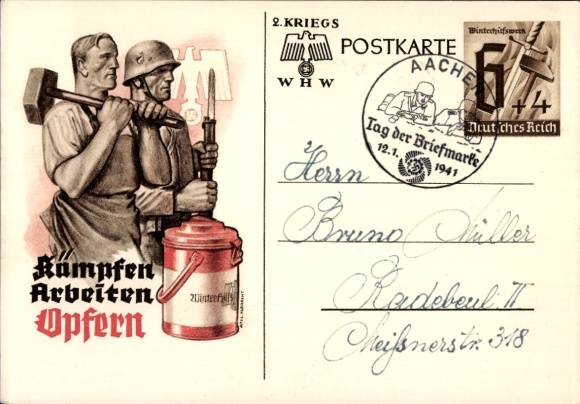 2. KRIEGS
WHW
POSTKARTE
Winterhilfswerk
6+4
Deutsches Reich
AACHEN
Tag der Briefmarke
12.1.1941
Herrn
Bruno Müller
Radebeul II
Meißnerstr. 318
Kämpfen
Arbeiten
Opfern
Winterhilfs